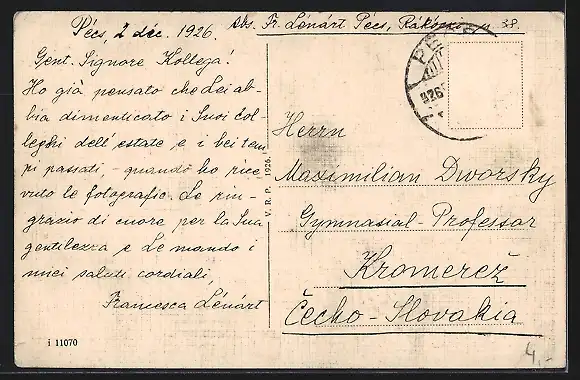 Pécs, 2 déc. 1926.
Abs. Fr. Lénárt Pécs, Rákóczi u 38.
Gent. Signore Kollega!
Ho già pensato che Lei ab-
bia dimenticato i Suoi Col-
leghi dell'estate e i bei tem
pi passati, - quando ho rice
vuto le fotografie. Le rin-
grazio di cuore per la Sua
gentilezza e Le mando i
miei saluti cordiali,
Francesca Lénárt
i 11070
V. R. P. 1926.
PÉCS
926
Herrn
Maximilian Dworsky
Gymnasial-Professor
Kromerež
Čecho-Slovakia
4,-